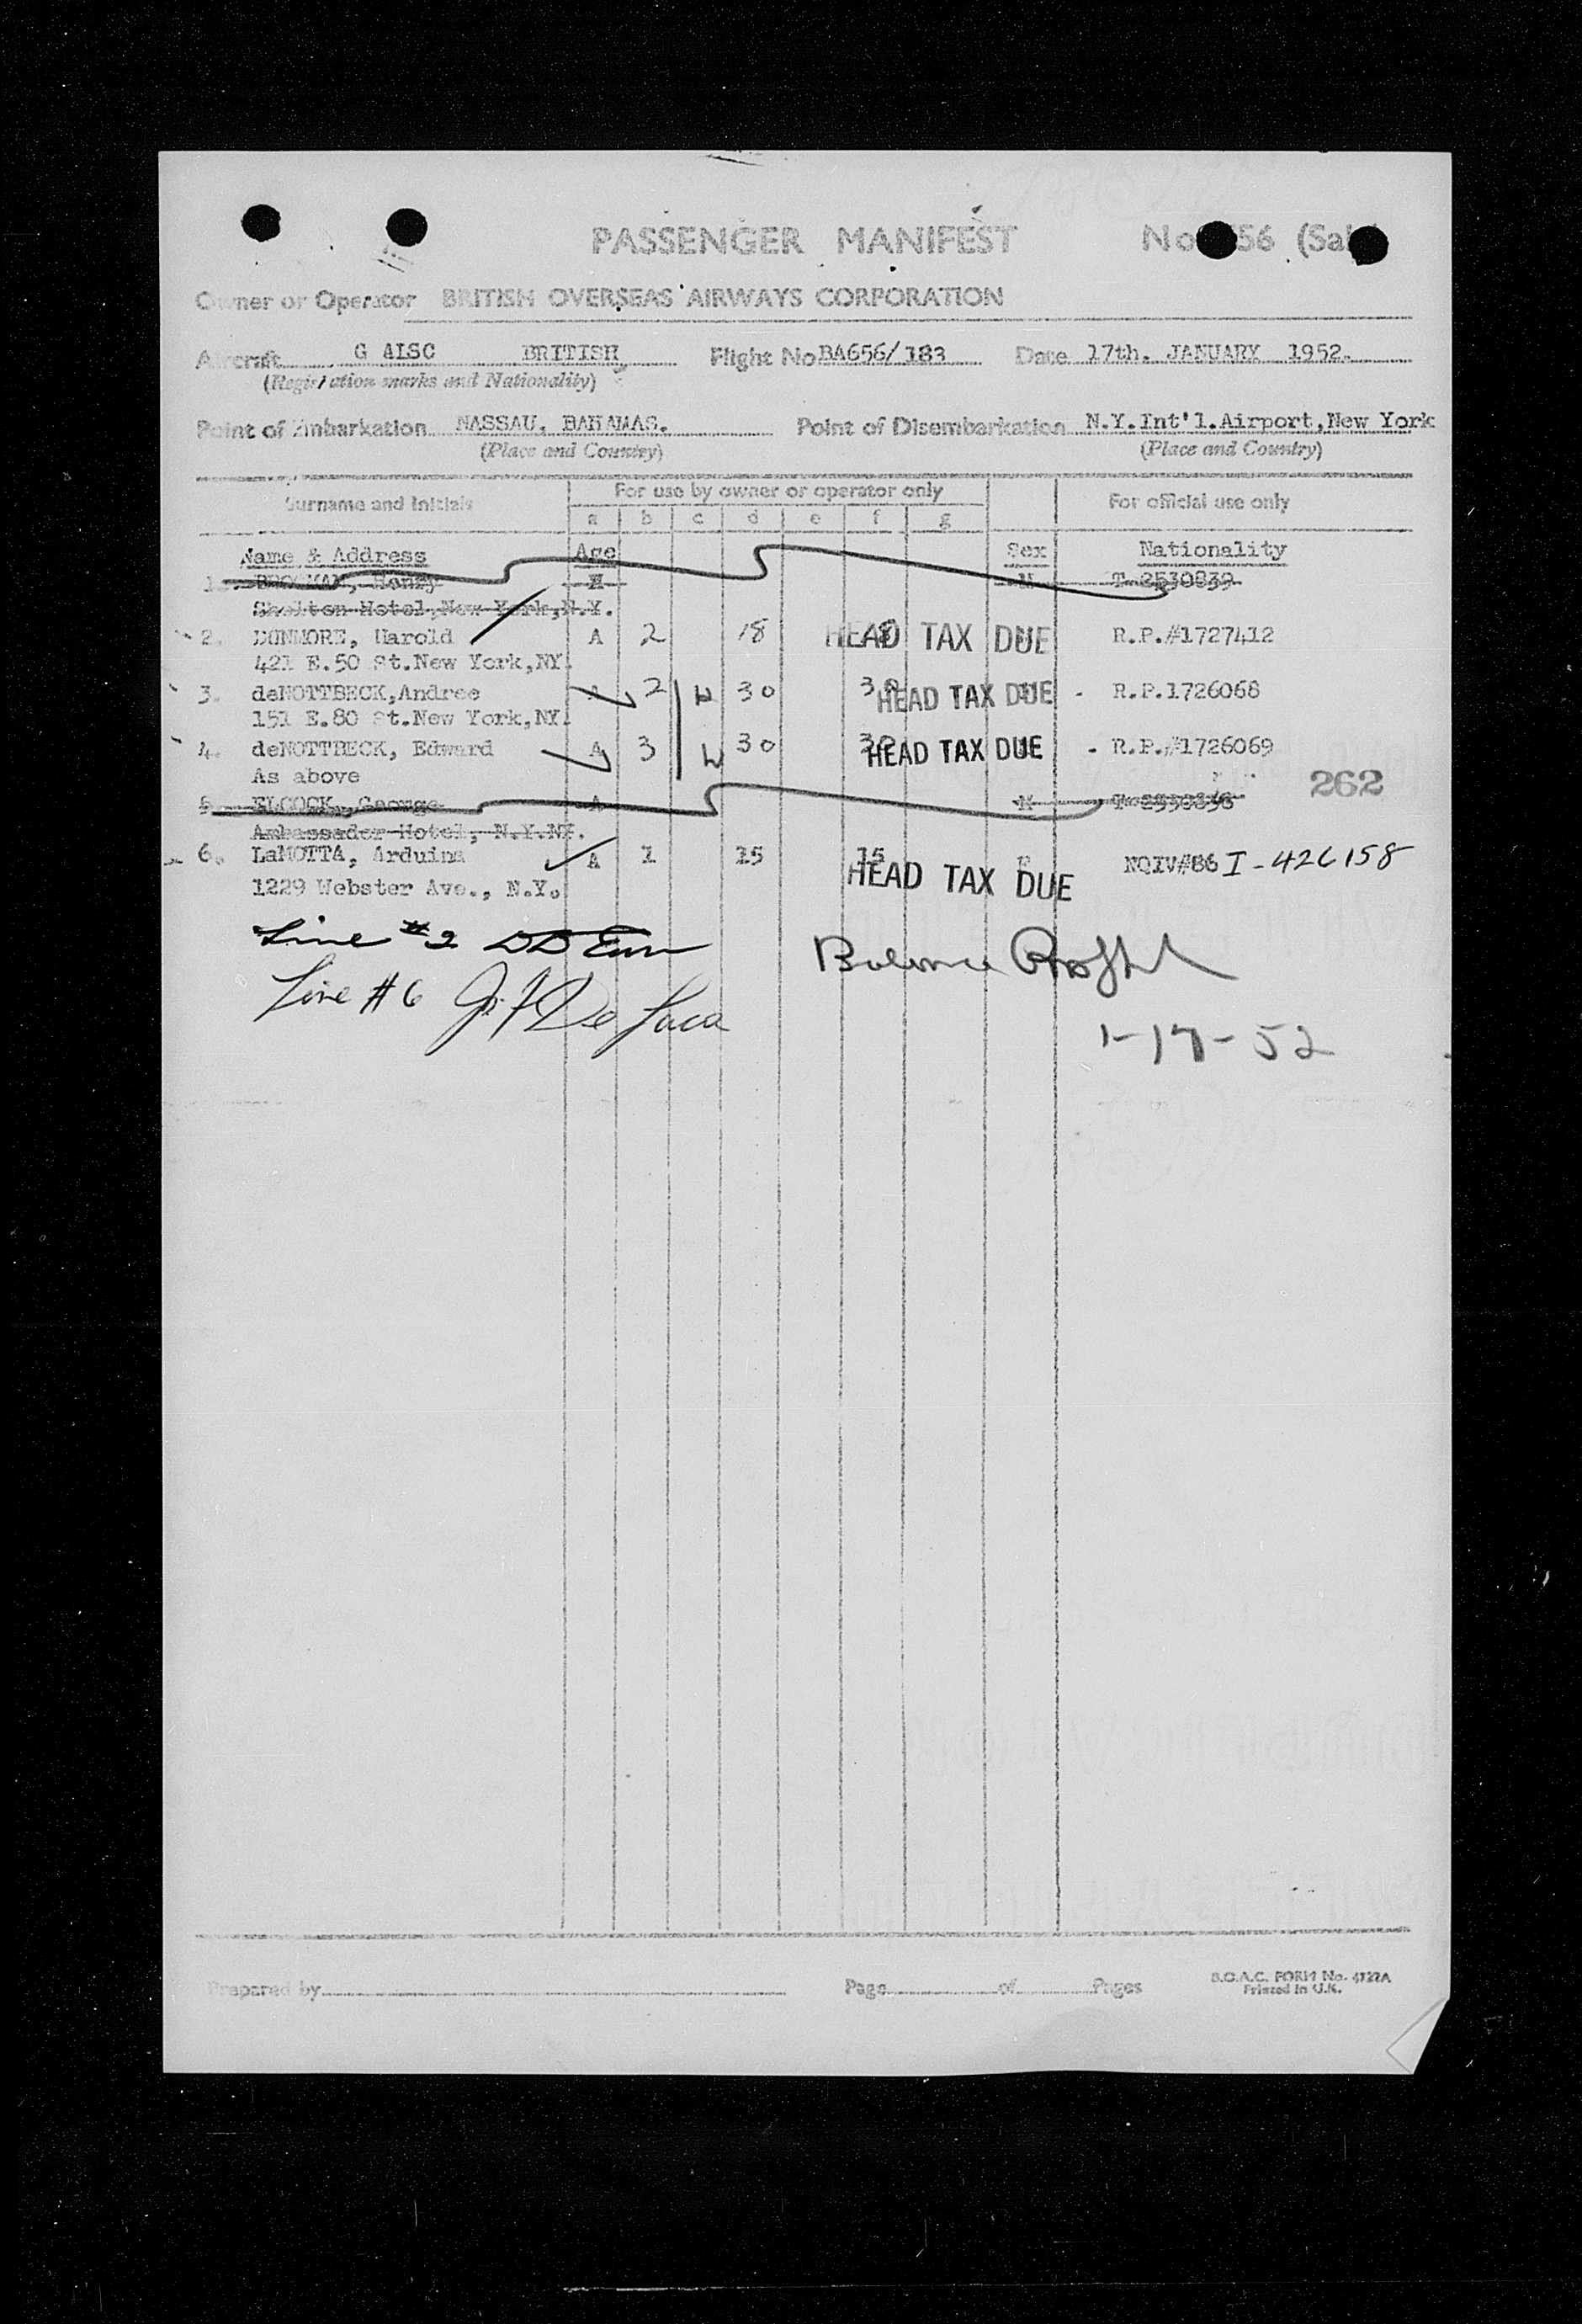 PASSENGER MANIFEST No 56
Owner or Operator BRITISH OVERSEAS AIRWAYS CORPORATION
Aircraft G ALSC BRITISH Flight No BA656/183 Date 17th. JANUARY 1952.
(Registration marks and Nationality)
Point of Embarkation NASSAU, BAHAMAS. Point of Disembarkation N.Y.Int'l.Airport,New York
(Place and Country) (Place and Country)
Surname and Initials For use by owner or operator only For official use only
a b c d e f g
Name & Address Age Sex Nationality
1. Henry M T-2530839
Shelton Hotel,New York,N.Y.
2. DUNMORE, Harold A 2 18 HEAD TAX DUE R.P.#1727412
421 E.50 St.New York,NY.
3. deNOTTBECK,Andree A 2 30 30 HEAD TAX DUE R.P.1726068
151 E.80 St.New York,NY.
4. deNOTTBECK, Edward A 3 30 30 HEAD TAX DUE R.P.#1726069
As above
262
5. ELCOCK, George A M
Ambassador Hotel, N.Y.NY.
6. LaMOTTA, Arduina A 1 15 15 HEAD TAX DUE NQIV#86 I-426158
1229 Webster Ave., N.Y.
Line #2
Balance
Line #6 De Luca
1-17-52
Prepared by Page of Pages B.O.A.C. FORM No. 4127A
Printed in U.K.